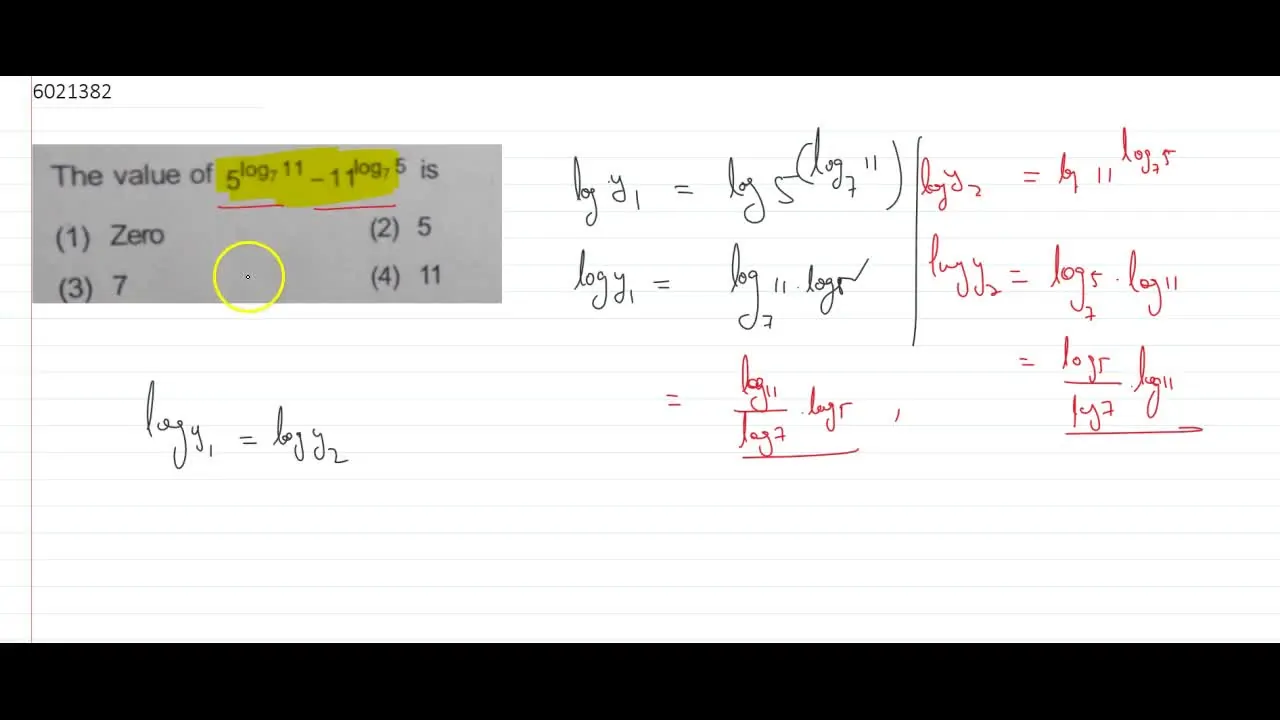 6021382
The value of 5^log₇ 11 – 11^log₇ 5 is
(1) Zero (2) 5
(3) 7 (4) 11
log y₁ = log 5^(log₇ 11)
log y₁ = log₇ 11 · log 5
= log 11 / log 7 · log 5 ,
log y₂ = log 11^log₇ 5
log y₂ = log₇ 5 · log 11
= log 5 / log 7 · log 11
log y₁ = log y₂